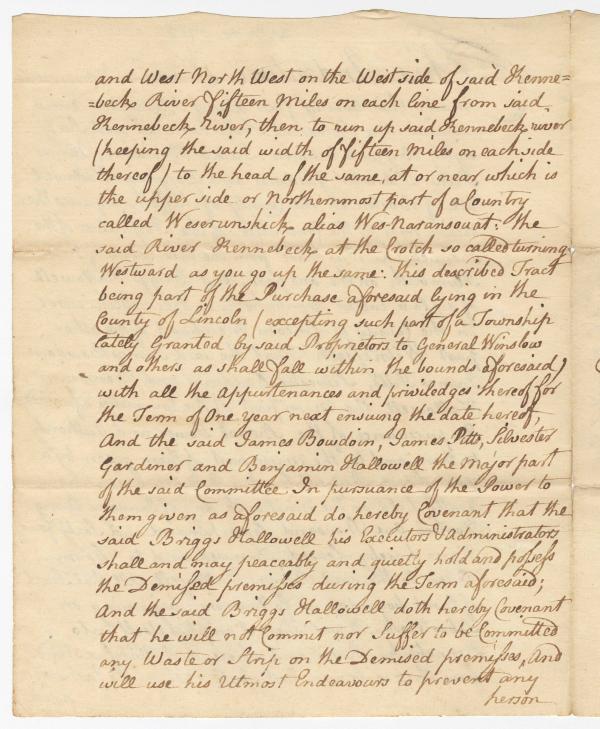 and West North West on the West side of said Kenne=
=beck River fifteen Miles on each line from said
Kennebeck River, then to run up said Kennebeck river
(keeping the said width of fifteen Miles on each side
thereof) to the head of the same, at or near which is
the upper side or Northernmost part of a Country
called Weserunshick alias Wes-Naransouat: the
said River Kennebeck at the Crotch so called turning
Westward as you go up the same: this described Tract
being part of the Purchase aforesaid lying in the
County of Lincoln (excepting such part of a Township
lately Granted by said Proprietors to General Winslow
and others as shall fall within the bounds aforesaid)
with all the appurtenances and priviledges thereof for
the Term of One Year next ensuing the date hereof,
And the said James Bowdoin, James Pitts, Silvester
Gardiner and Benjamin Hallowell the Major part
of the said Committee In pursuance of the Power to
them given as aforesaid do hereby Covenant that the
said Briggs Hallowell his Executors & Administrators
shall and may peaceably and quietly hold and possess
the Demised premisses during the Term aforesaid;
And the said Briggs Hallowell doth hereby Covenant
that he will not Commit nor Suffer to be Committed
any Waste or Strip on the Demised premisses, And
will use his Utmost Endeavours to prevent any
person